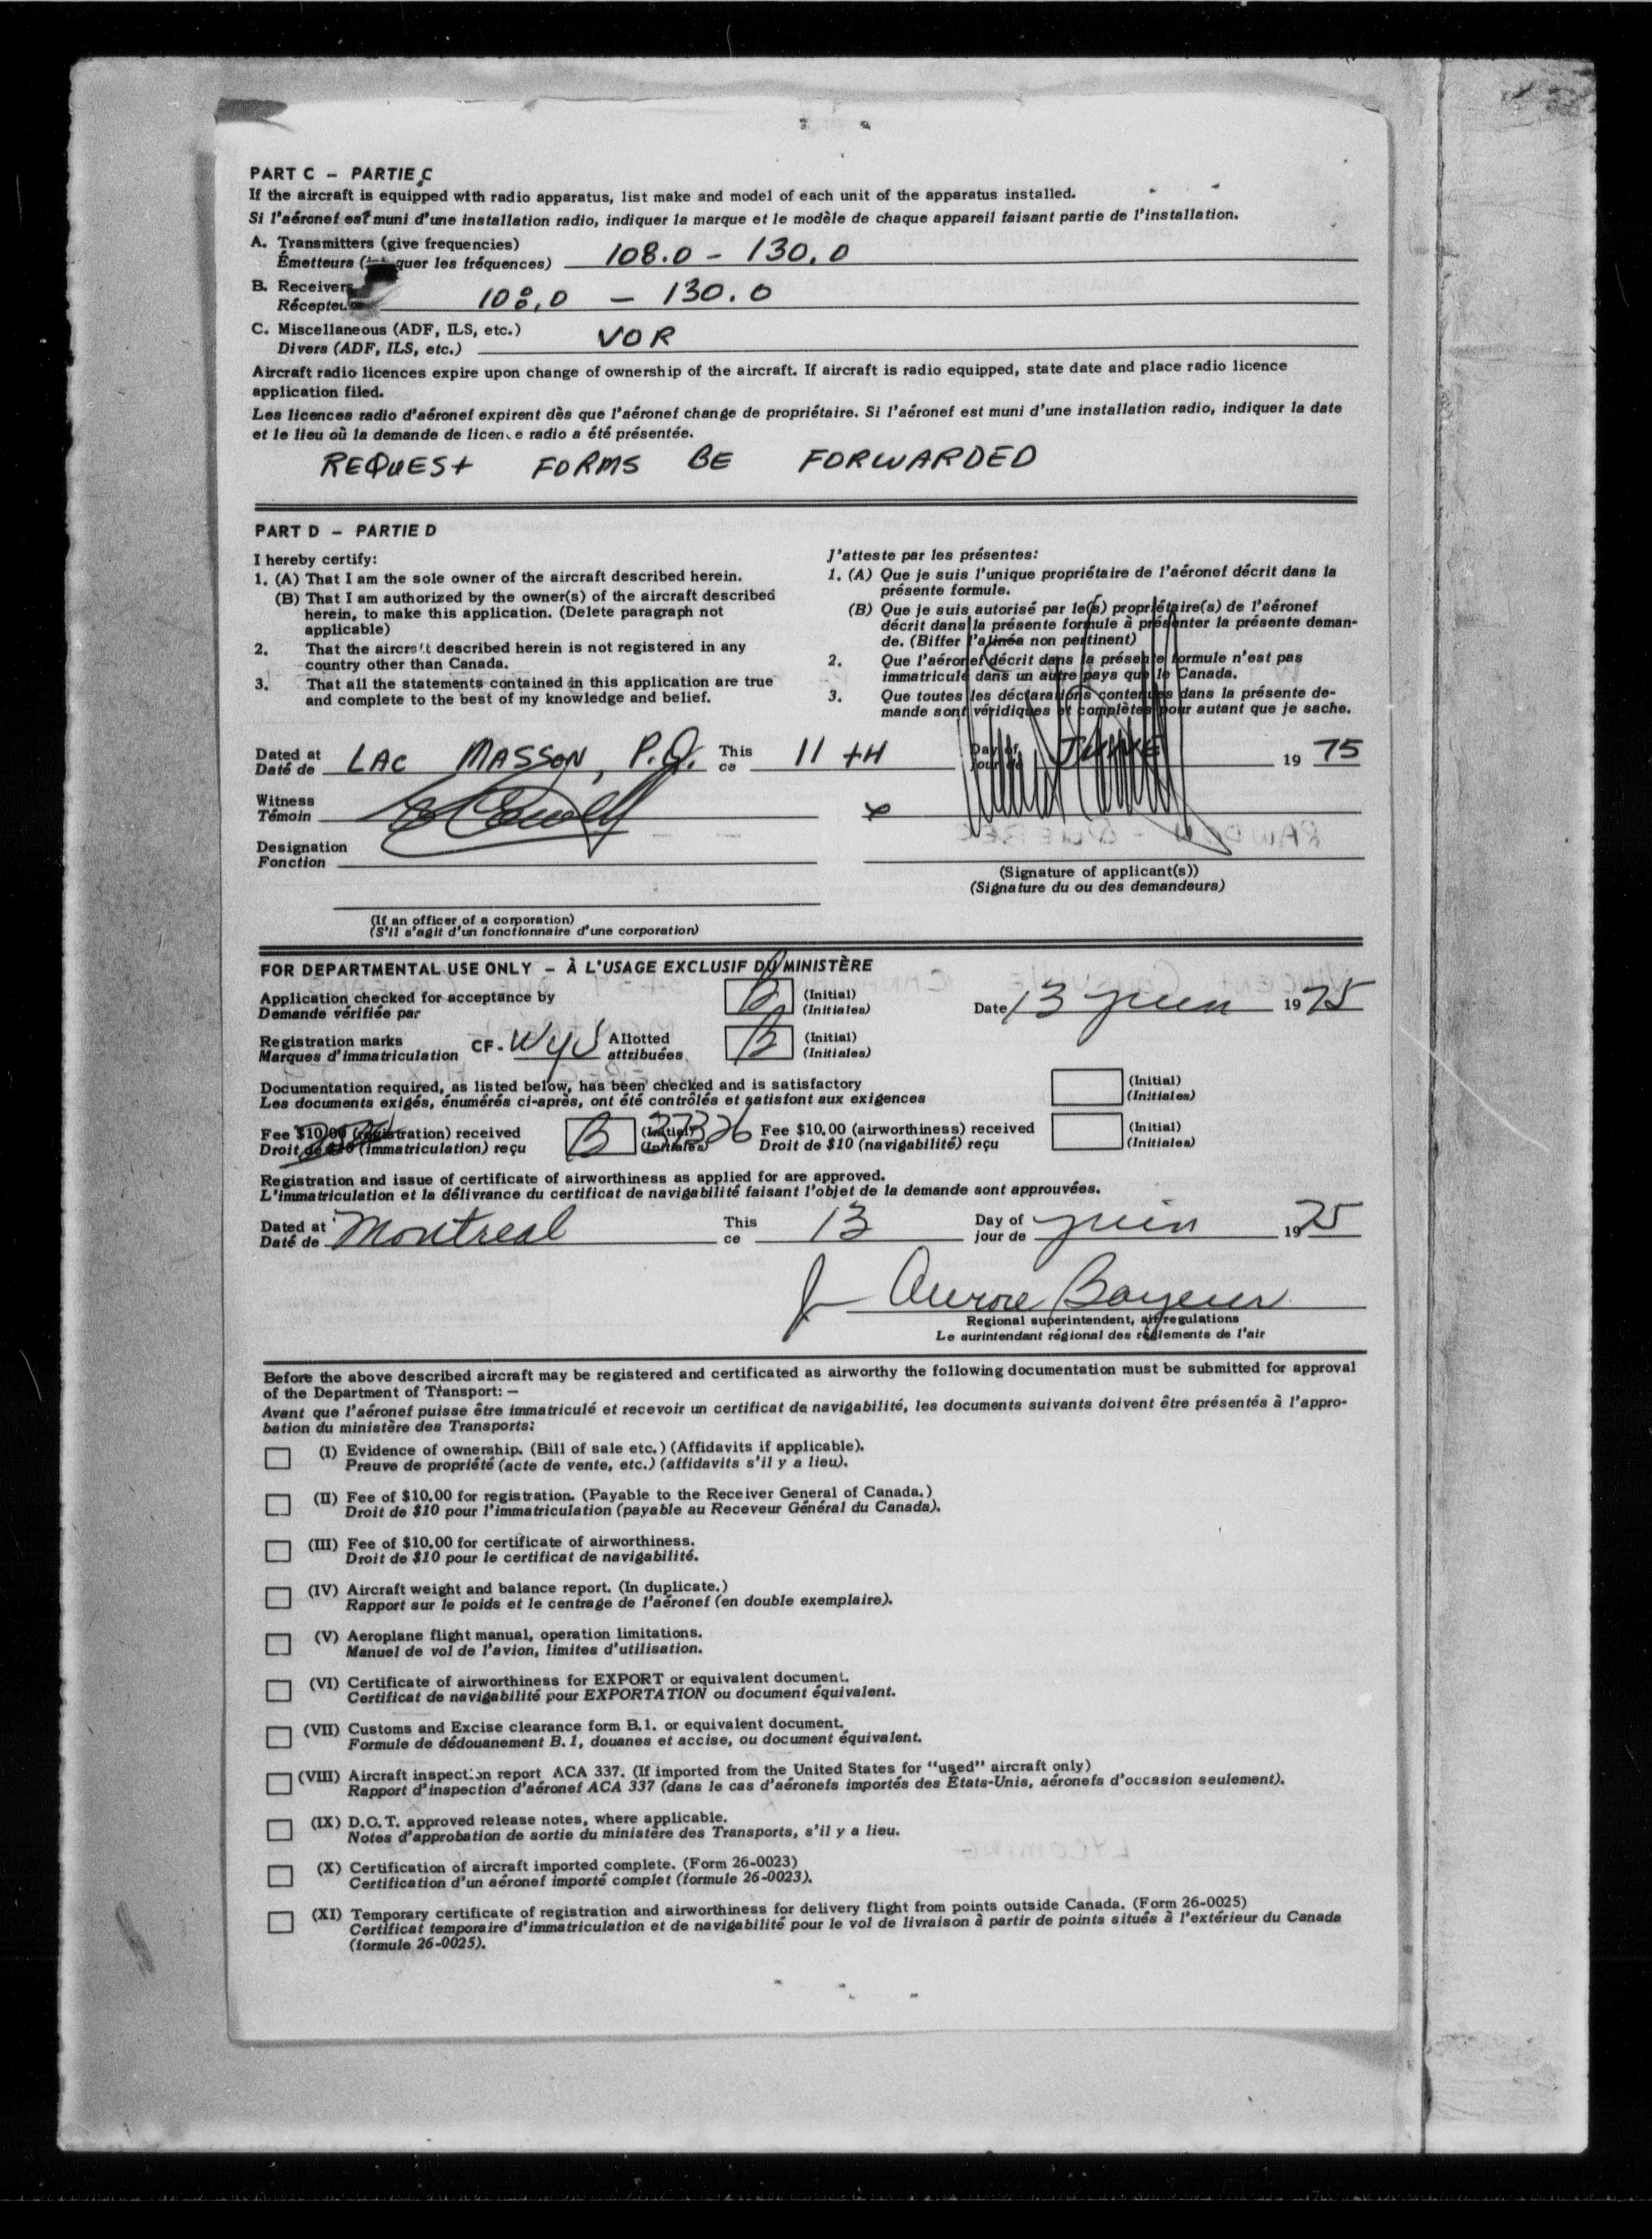 PART C – PARTIE C
If the aircraft is equipped with radio apparatus, list make and model of each unit of the apparatus installed.
Si l'aéronef est muni d'une installation radio, indiquer la marque et le modèle de chaque appareil faisant partie de l'installation.
A. Transmitters (give frequencies)
Émetteurs ( quer les fréquences) 108.0 – 130.0
B. Receivers
108.0 – 130.0
C. Miscellaneous (ADF, ILS, etc.)
Divers (ADF, ILS, etc.) VOR
Aircraft radio licences expire upon change of ownership of the aircraft. If aircraft is radio equipped, state date and place radio licence
application filed.
Les licences radio d'aéronef expirent dès que l'aéronef change de propriétaire. Si l'aéronef est muni d'une installation radio, indiquer la date
et le lieu où la demande de licence radio a été présentée.
REQUEST FORMS BE FORWARDED
PART D – PARTIE D
I hereby certify:
1. (A) That I am the sole owner of the aircraft described herein.
(B) That I am authorized by the owner(s) of the aircraft described
herein, to make this application. (Delete paragraph not
applicable)
2. That the aircraft described herein is not registered in any
country other than Canada.
3. That all the statements contained in this application are true
and complete to the best of my knowledge and belief.
J'atteste par les présentes:
1. (A) Que je suis l'unique propriétaire de l'aéronef décrit dans la
présente formule.
(B) Que je suis autorisé par le(s) propriétaire(s) de l'aéronef
décrit dans la présente formule à présenter la présente deman-
de. (Biffer l'alinéa non pertinent)
2. Que l'aéronef décrit dans la présente formule n'est pas
immatriculé dans un autre pays que le Canada.
3. Que toutes les déclarations contenues dans la présente de-
mande sont véridiques et complètes pour autant que je sache.
Dated at This Day of
Daté de LAC MASSON, P.Q. ce 11 TH jour de JUNE 19 75
Witness
Témoin x
Designation
Fonction
(Signature of applicant(s))
(Signature du ou des demandeurs)
(If an officer of a corporation)
(S'il s'agit d'un fonctionnaire d'une corporation)
FOR DEPARTMENTAL USE ONLY – À L'USAGE EXCLUSIF DU MINISTÈRE
Application checked for acceptance by B (Initial) Date 13 juin 1975
Demande vérifiée par (Initiales)
Registration marks CF- WYS Allotted B (Initial)
Marques d'immatriculation attribuées (Initiales)
Documentation required, as listed below, has been checked and is satisfactory (Initial)
Les documents exigés, énumérés ci-après, ont été contrôlés et satisfont aux exigences (Initiales)
Fee $10.00 (registration) received B (Initial) Fee $10.00 (airworthiness) received (Initial)
Droit de $10 (immatriculation) reçu (Initiales) Droit de $10 (navigabilité) reçu (Initiales)
Registration and issue of certificate of airworthiness as applied for are approved.
L'immatriculation et la délivrance du certificat de navigabilité faisant l'objet de la demande sont approuvées.
Dated at This Day of
Daté de Montreal ce 13 jour de juin 1975
Aurore
Regional superintendent, air regulations
Le surintendant régional des règlements de l'air
Before the above described aircraft may be registered and certificated as airworthy the following documentation must be submitted for approval
of the Department of Transport: –
Avant que l'aéronef puisse être immatriculé et recevoir un certificat de navigabilité, les documents suivants doivent être présentés à l'appro-
bation du ministère des Transports:
(I) Evidence of ownership. (Bill of sale etc.) (Affidavits if applicable).
Preuve de propriété (acte de vente, etc.) (affidavits s'il y a lieu).
(II) Fee of $10.00 for registration. (Payable to the Receiver General of Canada.)
Droit de $10 pour l'immatriculation (payable au Receveur Général du Canada).
(III) Fee of $10.00 for certificate of airworthiness.
Droit de $10 pour le certificat de navigabilité.
(IV) Aircraft weight and balance report. (In duplicate.)
Rapport sur le poids et le centrage de l'aéronef (en double exemplaire).
(V) Aeroplane flight manual, operation limitations.
Manuel de vol de l'avion, limites d'utilisation.
(VI) Certificate of airworthiness for EXPORT or equivalent document.
Certificat de navigabilité pour EXPORTATION ou document équivalent.
(VII) Customs and Excise clearance form B.1. or equivalent document.
Formule de dédouanement B.1, douanes et accise, ou document équivalent.
(VIII) Aircraft inspection report ACA 337. (If imported from the United States for "used" aircraft only)
Rapport d'inspection d'aéronef ACA 337 (dans le cas d'aéronefs importés des États-Unis, aéronefs d'occasion seulement).
(IX) D.O.T. approved release notes, where applicable.
Notes d'approbation de sortie du ministère des Transports, s'il y a lieu.
(X) Certification of aircraft imported complete. (Form 26-0023)
Certification d'un aéronef importé complet (formule 26-0023).
(XI) Temporary certificate of registration and airworthiness for delivery flight from points outside Canada. (Form 26-0025)
Certificat temporaire d'immatriculation et de navigabilité pour le vol de livraison à partir de points situés à l'extérieur du Canada
(formule 26-0025).